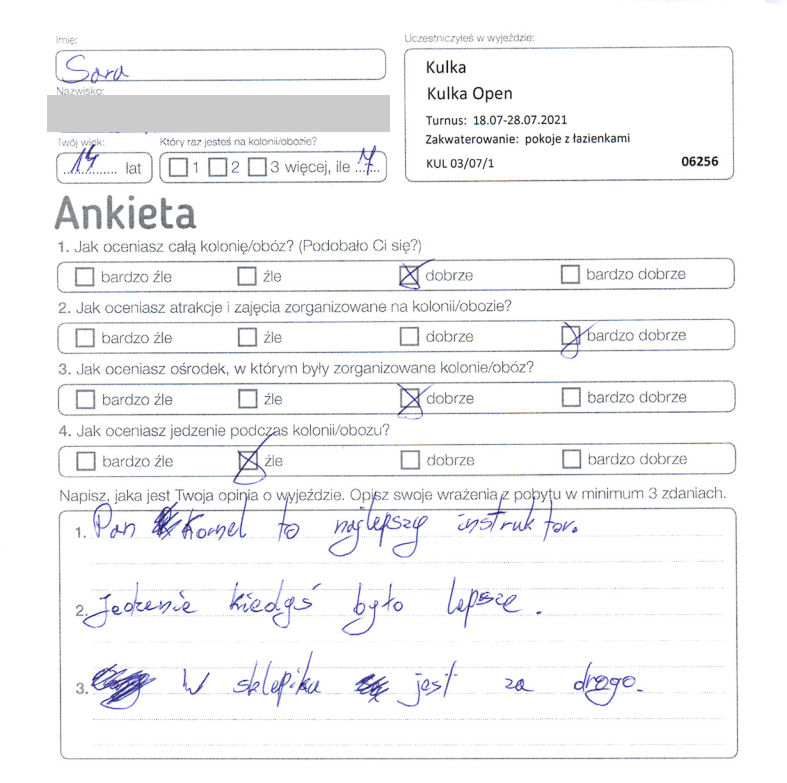 Imię:
Uczestniczyłeś w wyjeździe:
Sara
Kulka
Nazwisko:
Kulka Open
Turnus: 18.07-28.07.2021
Zakwaterowanie: pokoje z łazienkami
KUL 03/07/1 06256
Twój wiek: Który raz jesteś na kolonii/obozie?
14 lat 1 2 3 więcej, ile 7
Ankieta
1. Jak oceniasz całą kolonię/obóz? (Podobało Ci się?)
bardzo źle źle dobrze bardzo dobrze
2. Jak oceniasz atrakcje i zajęcia zorganizowane na kolonii/obozie?
bardzo źle źle dobrze bardzo dobrze
3. Jak oceniasz ośrodek, w którym były zorganizowane kolonie/obóz?
bardzo źle źle dobrze bardzo dobrze
4. Jak oceniasz jedzenie podczas kolonii/obozu?
bardzo źle źle dobrze bardzo dobrze
Napisz, jaka jest Twoja opinia o wyjeździe. Opisz swoje wrażenia z pobytu w minimum 3 zdaniach.
1. Pan Kornel to najlepszy instruktor.
2. Jedzenie kiedyś było lepsze.
3. W sklepiku jest za drogo.